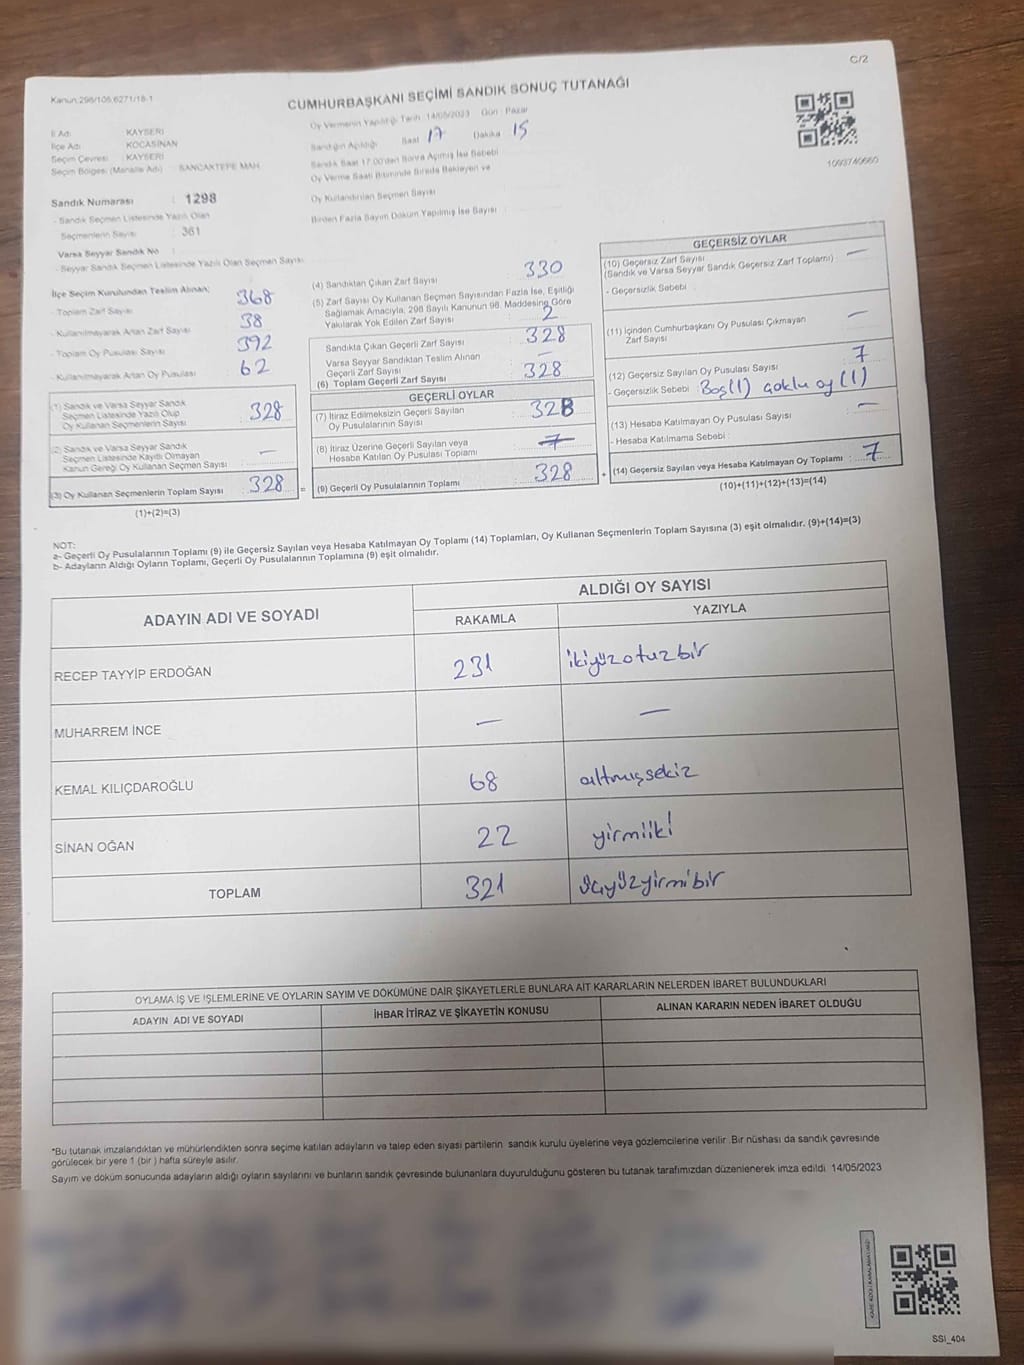 C/2
Kanun:298/105.6271/18-1
CUMHURBAŞKANI SEÇİMİ SANDIK SONUÇ TUTANAĞI
İl Adı : KAYSERİ
İlçe Adı : KOCASİNAN
Seçim Çevresi : KAYSERİ
Seçim Bölgesi (Mahalle Adı) : SANCAKTEPE MAH.
Oy Vermenin Yapıldığı Tarih :14/05/2023 Gün : Pazar
Sandığın Açıldığı Saat 17 Dakika 15
Sandık Saat 17:00'dan Sonra Açılmış İse Sebebi
Oy Verme Saati Bitiminde Sırada Bekleyen ve
Oy Kullandırılan Seçmen Sayısı
Birden Fazla Sayım Döküm Yapılmış İse Sayısı :
1093740660
Sandık Numarası : 1298
- Sandık Seçmen Listesinde Yazılı Olan
Seçmenlerin Sayısı : 361
Varsa Seyyar Sandık No :
- Seyyar Sandık Seçmen Listesinde Yazılı Olan Seçmen Sayısı
İlçe Seçim Kurulundan Teslim Alınan;
- Toplam Zarf Sayısı 368
- Kullanılmayarak Artan Zarf Sayısı 38
- Toplam Oy Pusulası Sayısı 392
- Kullanılmayarak Artan Oy Pusulası 62
(1) Sandık ve Varsa Seyyar Sandık
Seçmen Listesinde Yazılı Olup
Oy Kullanan Seçmenlerin Sayısı : 328
(2) Sandık ve Varsa Seyyar Sandık
Seçmen Listesinde Kayıtlı Olmayan
Kanun Gereği Oy Kullanan Seçmen Sayısı : —
(3) Oy Kullanan Seçmenlerin Toplam Sayısı : 328 =
(1)+(2)=(3)
(4) Sandıktan Çıkan Zarf Sayısı 330
(5) Zarf Sayısı Oy Kullanan Seçmen Sayısından Fazla İse, Eşitliği
Sağlamak Amacıyla, 298 Sayılı Kanunun 98. Maddesine Göre
Yakılarak Yok Edilen Zarf Sayısı : 2
Sandıkta Çıkan Geçerli Zarf Sayısı : 328
Varsa Seyyar Sandıktan Teslim Alınan
Geçerli Zarf Sayısı : —
(6) Toplam Geçerli Zarf Sayısı : 328
GEÇERLİ OYLAR
(7) İtiraz Edilmeksizin Geçerli Sayılan
Oy Pusulalarının Sayısı : 328
(8) İtiraz Üzerine Geçerli Sayılan veya
Hesaba Katılan Oy Pusulası Toplamı : 7
(9) Geçerli Oy Pusulalarının Toplamı : 328 +
GEÇERSİZ OYLAR
(10) Geçersiz Zarf Sayısı : —
(Sandık ve Varsa Seyyar Sandık Geçersiz Zarf Toplamı)
- Geçersizlik Sebebi :
(11) İçinden Cumhurbaşkanı Oy Pusulası Çıkmayan
Zarf Sayısı : —
(12) Geçersiz Sayılan Oy Pusulası Sayısı : 7
- Geçersizlik Sebebi : Boş(1) çoklu oy (1)
(13) Hesaba Katılmayan Oy Pusulası Sayısı : —
- Hesaba Katılmama Sebebi :
(14) Geçersiz Sayılan veya Hesaba Katılmayan Oy Toplamı : 7
(10)+(11)+(12)+(13)=(14)
NOT:
a- Geçerli Oy Pusulalarının Toplamı (9) ile Geçersiz Sayılan veya Hesaba Katılmayan Oy Toplamı (14) Toplamları, Oy Kullanan Seçmenlerin Toplam Sayısına (3) eşit olmalıdır. (9)+(14)=(3)
b- Adayların Aldığı Oyların Toplamı, Geçerli Oy Pusulalarının Toplamına (9) eşit olmalıdır.
ADAYIN ADI VE SOYADI
ALDIĞI OY SAYISI
RAKAMLA YAZIYLA
RECEP TAYYİP ERDOĞAN 231 ikiyüzotuzbir
MUHARREM İNCE — —
KEMAL KILIÇDAROĞLU 68 altmışsekiz
SİNAN OĞAN 22 yirmiiki
TOPLAM 321 üçyüzyirmibir
OYLAMA İŞ VE İŞLEMLERİNE VE OYLARIN SAYIM VE DÖKÜMÜNE DAİR ŞİKAYETLERLE BUNLARA AİT KARARLARIN NELERDEN İBARET BULUNDUKLARI
ADAYIN ADI VE SOYADI İHBAR İTİRAZ VE ŞİKAYETİN KONUSU ALINAN KARARIN NEDEN İBARET OLDUĞU
*Bu tutanak imzalandıktan ve mühürlendikten sonra seçime katılan adayların ve talep eden siyasi partilerin sandık kurulu üyelerine veya gözlemcilerine verilir. Bir nüshası da sandık çevresinde
görülecek bir yere 1 (bir ) hafta süreyle asılır.
Sayım ve döküm sonucunda adayların aldığı oyların sayılarını ve bunların sandık çevresinde bulunanlara duyurulduğunu gösteren bu tutanak tarafımızdan düzenlenerek imza edildi. 14/05/2023
SSI_404